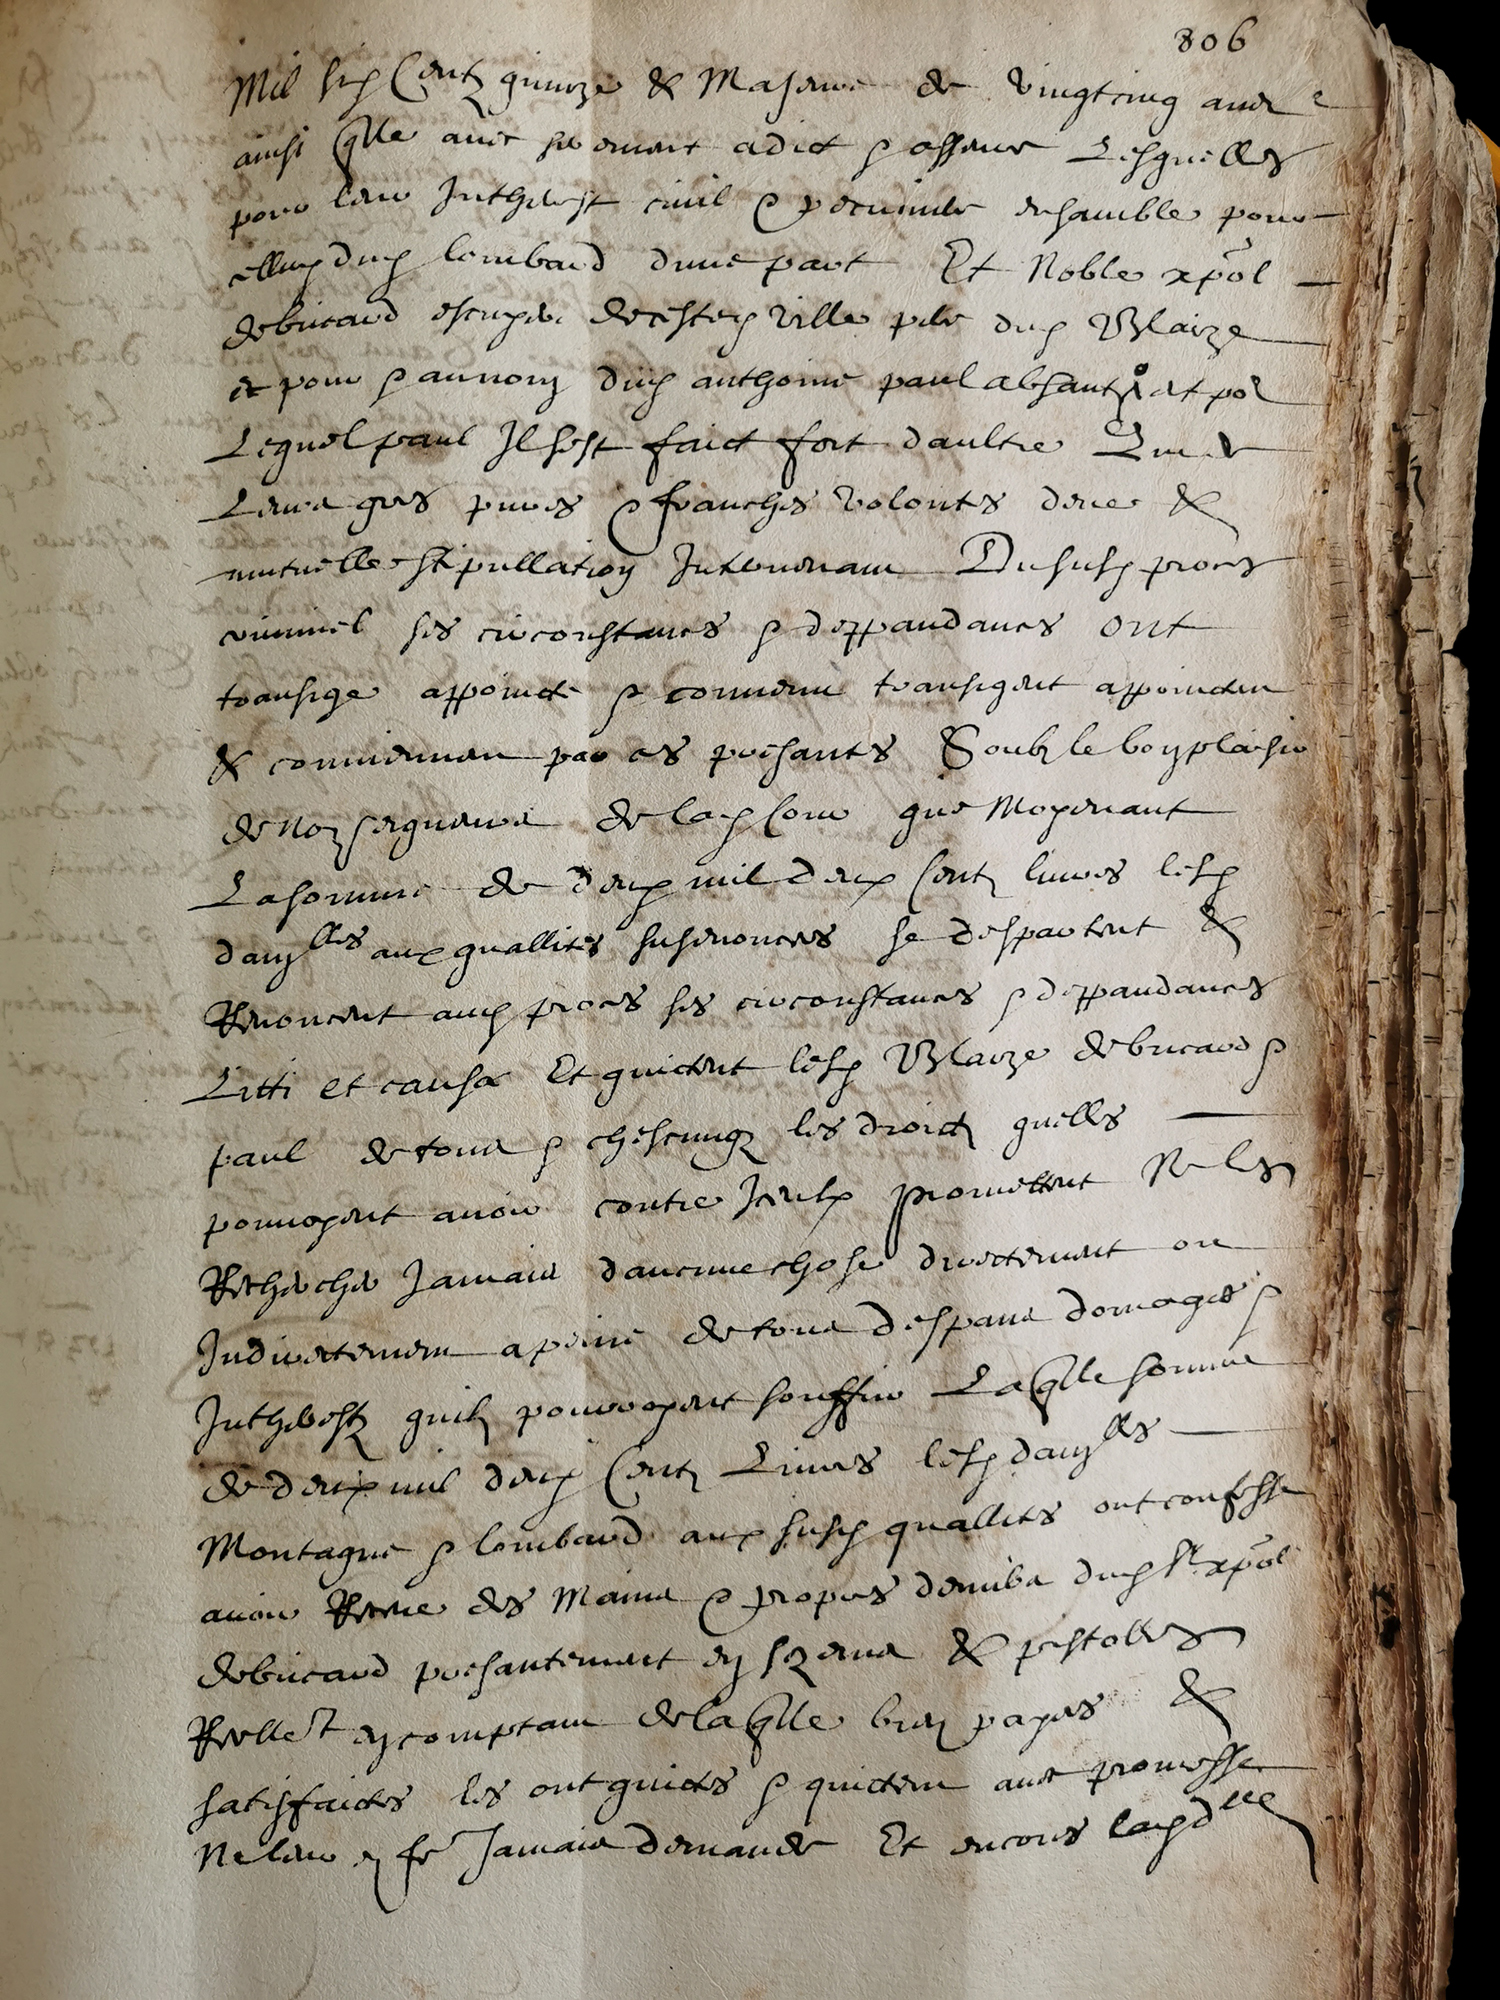 806
Mil six Centz quinze & Majeure de vingtcinq ans
ainsi qlle avec serement a dict & assure Lesquelles
pour leur Intherest civil & pecunier ensamble pour
celluy dud lombard dune part Et Noble xpol
debricard escuyer de ceste ville pere dud Blaize
et pour & au nom dud anthoine paul absant et por
Lequel paul Il sest faict fort daultre Que de
Leurs gres pures & franches volontes deue &
mutuelle stipullation Intervenant Du susd proces
criminel ses circonstances & deppandances ont
transige appoincte & convenu transigent appoincten
& conviennen par ces presantes Soubz le bon plaisir
de Noz seigneurs de lad Cour que Moyenant
La somme de deux mil deux Centz livres lesd
damlles aux quallites susenonces se despartent &
Renoncent aud proces ses circonstances & deppandances
Litti et causae Et quictent lesd Blaize debricard &
paul de tous & chescungz les droictz quelles
pourroyent avoir contre Iceulx promettent Ne les
Rechercher Jamais daucune chose directement ou
Indirectement a peine de tous despans domages &
Intherestz quilz pourroyent souffrir Laqlle somme
de deux mil deux Centz Livres lesd damlles
Montagne & lombard aux susd quallites ont confesse
avoir Receue des Mains & propres deniers dud sr xpol
debricard presantement en & pistolles
Reellemt en comptant de laqlle bien payes &
satisfaictes les ont quictes & quicten avec promesse
Ne leur en fe Jamais demande Et encores lad dlle